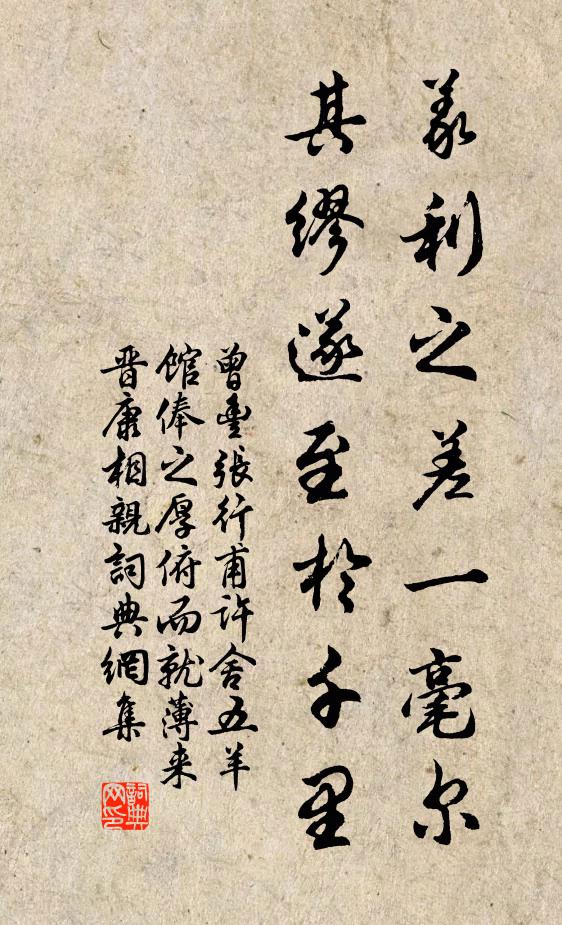 義利之差一毫尔
其繆遂至於千里
曾豊張行甫許舍五羊
館俸之厚俯而就薄来
晋康相親詞典網集
詞典网印